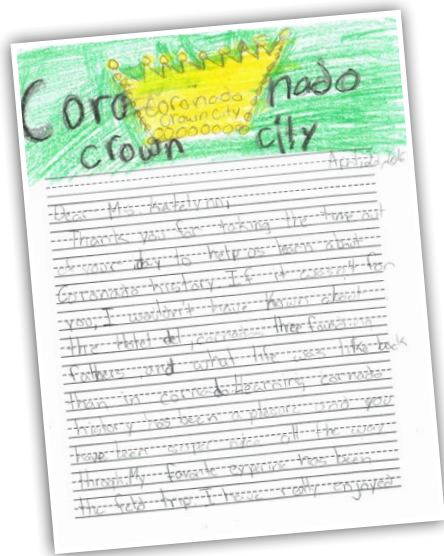 Coronado
Coronado
Crown City
crown city
Dear Ms. Katelynn,
Thank you for taking the time out
of your day to help us learn about
Coronado history. If it wasn't for
you, I wouldn't have known about
the Hotel del, three founding
fathers, and what life was like back
than in learning
history has been a pleasure and you
have been super nice all the way
through. My favorite has been
the feld trip. I have really enjoyed